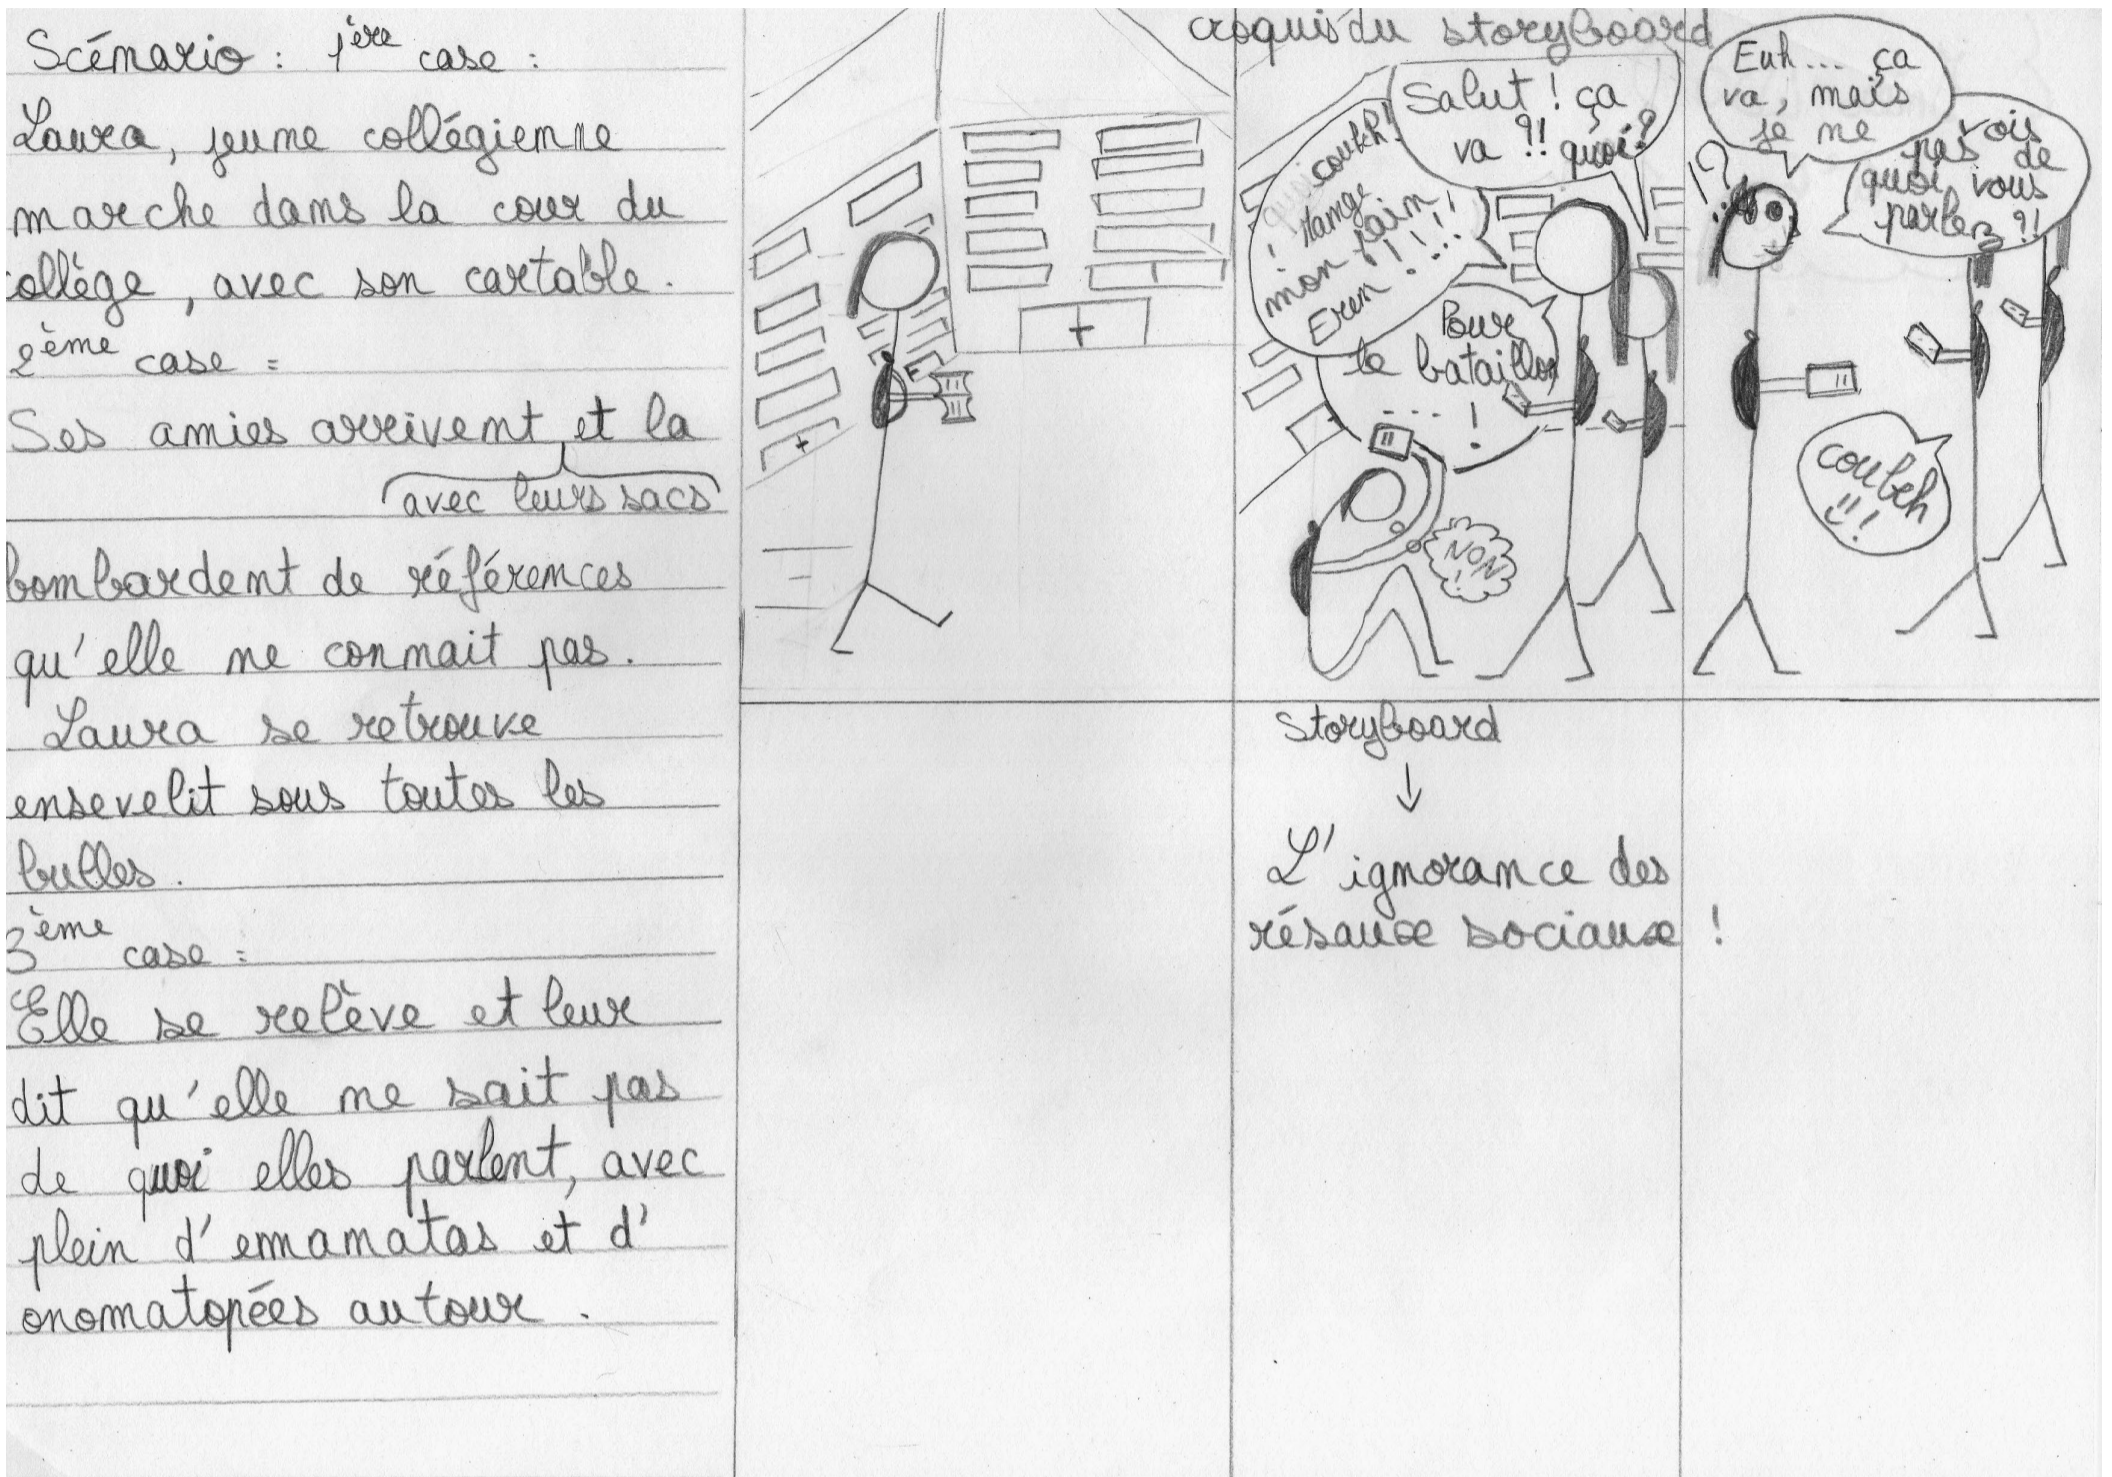 Scénario : 1ère case :
Laura, jeune collégienne
marche dans la cour du
collège, avec son cartable.
2ème case =
Ses amies arrivent et la
avec leurs sacs
bombardent de références
qu'elle ne connait pas.
Laura se retrouve
ensevelit sous toutes les
bulles.
3ème case =
Elle se relève et leur
dit qu'elle ne sait pas
de quoi elles parlent, avec
plein d'emamatas et d'
onomatopées autour.
croquis du storyboard
quoicoubeh!
Mange
mon pain
Eren !!!!!!
Salut ! ça
va ?!! quoi ?
Pour
le bataillon
---- !
NON
!
!?
Euh... ça
va, mais
je ne
vois
pas de
quoi vous
parlez ?!!
coubeh
!!
Storyboard
↓
L'ignorance des
résaux sociaux !